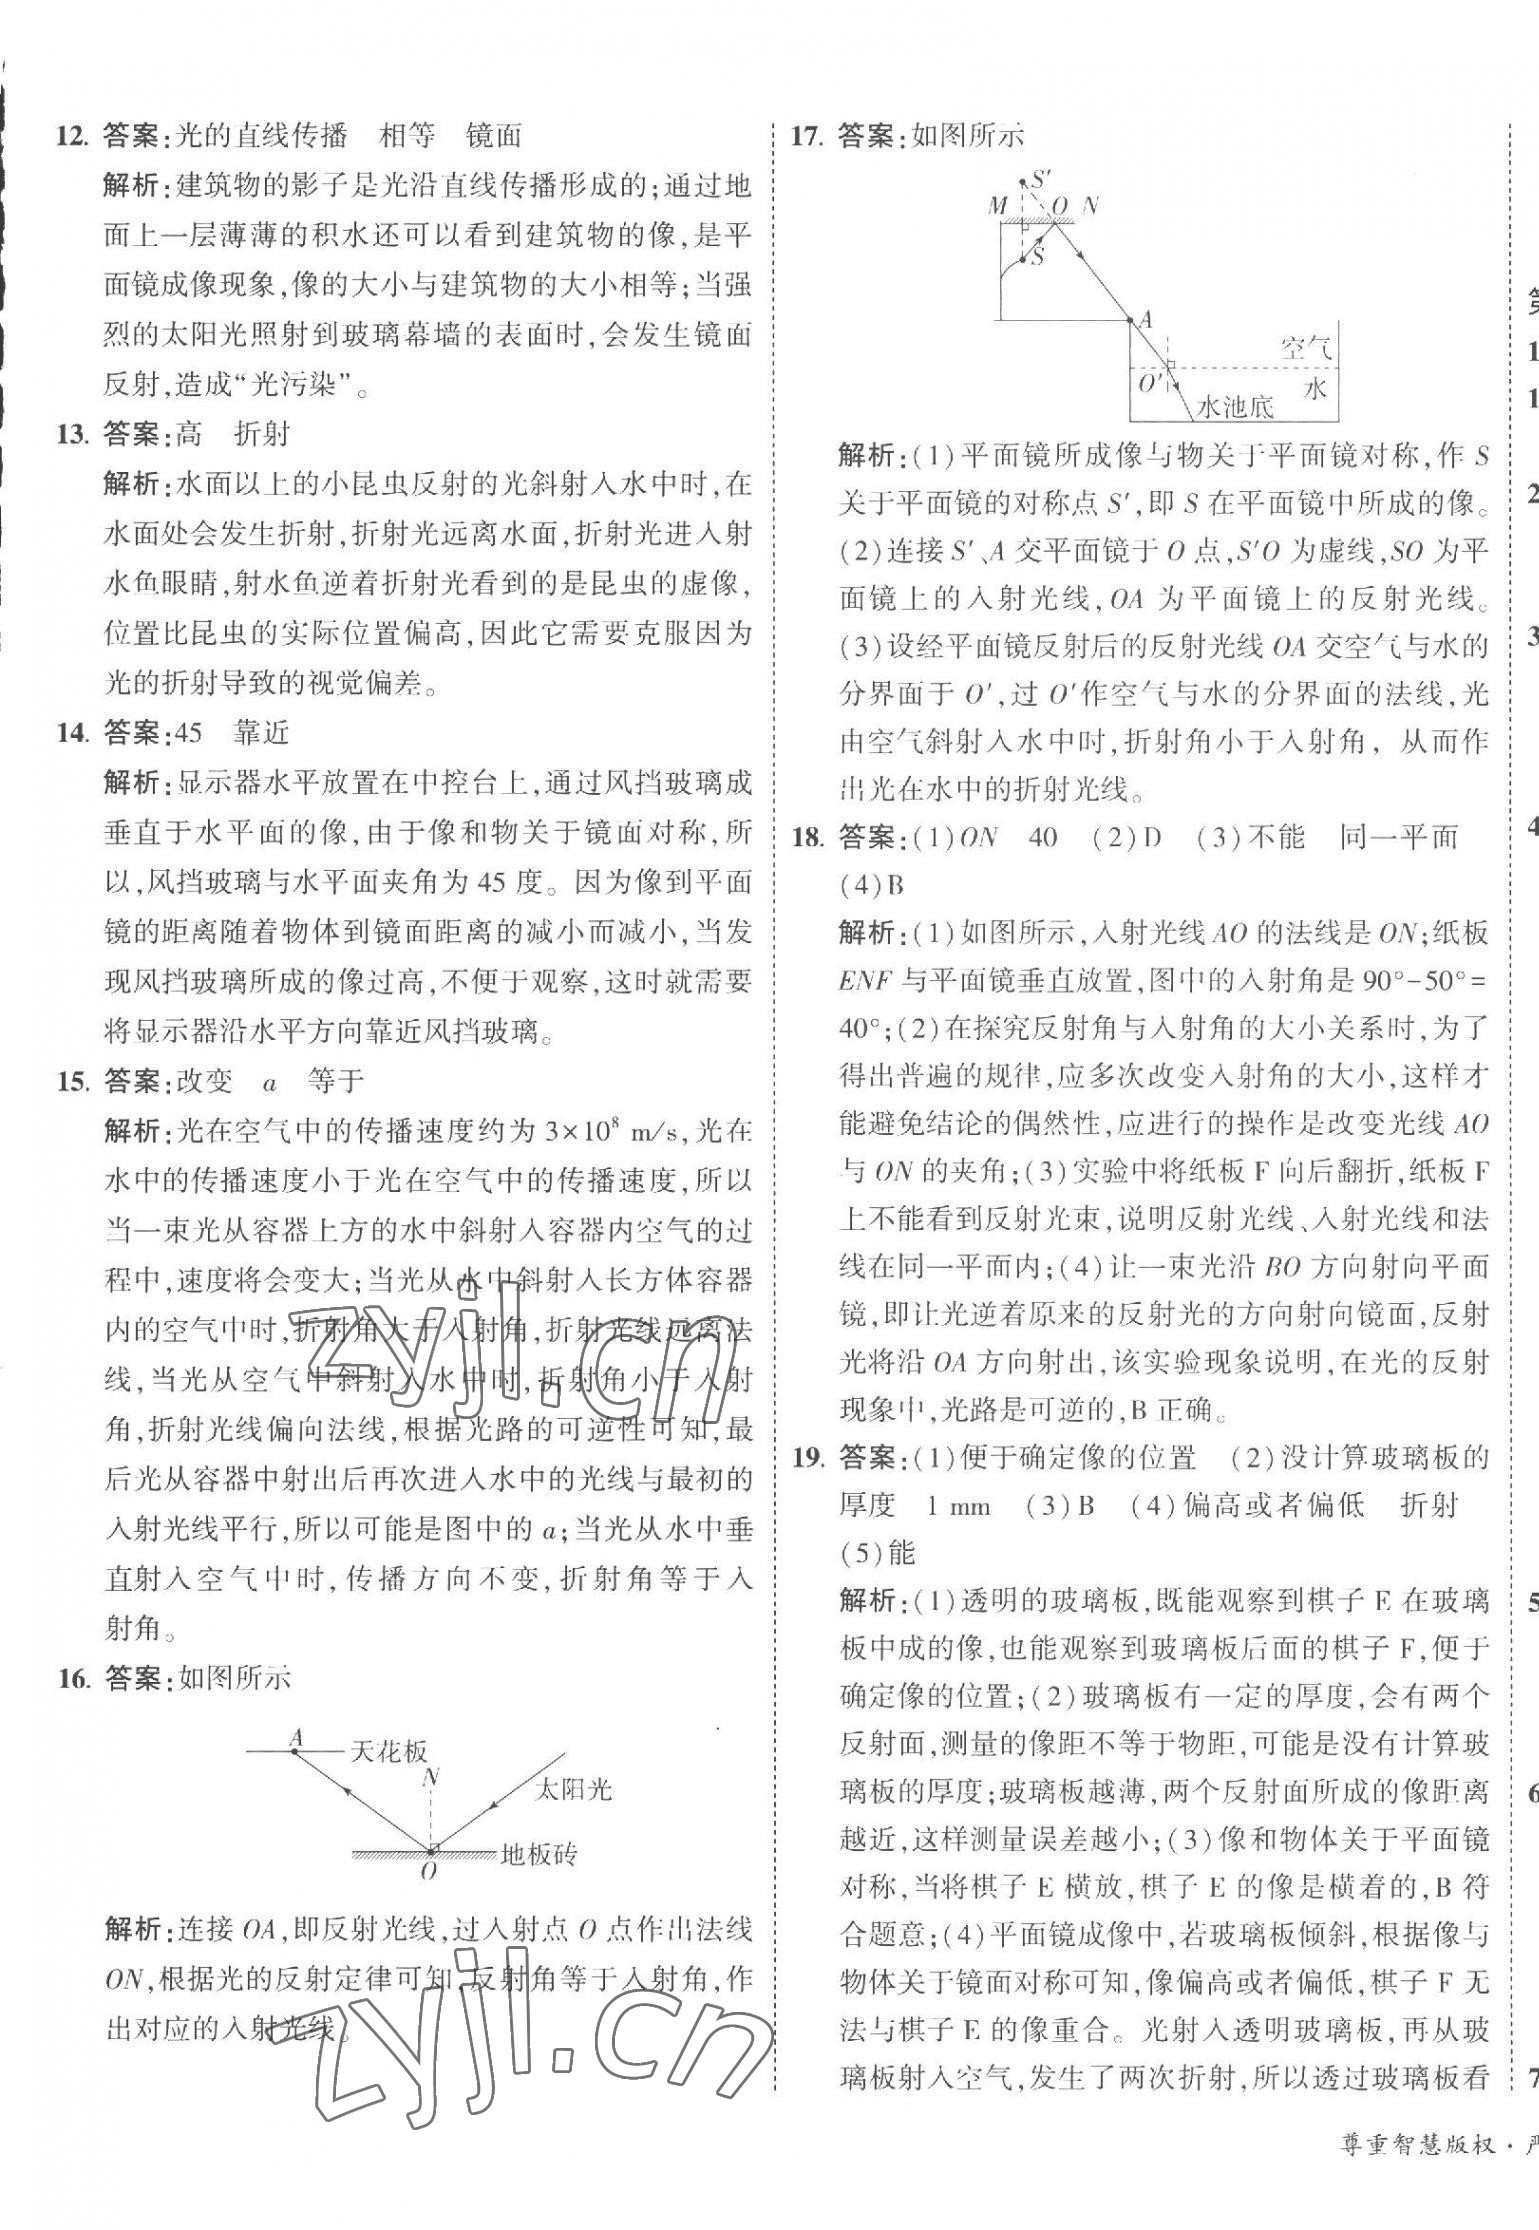 12. 答案:光的直线传播 相等 镜面
解析:建筑物的影子是光沿直线传播形成的;通过地
面上一层薄薄的积水还可以看到建筑物的像,是平
面镜成像现象,像的大小与建筑物的大小相等;当强
烈的太阳光照射到玻璃幕墙的表面时,会发生镜面
反射,造成“光污染”。
13. 答案:高 折射
解析:水面以上的小昆虫反射的光斜射入水中时,在
水面处会发生折射,折射光远离水面,折射光进入射
水鱼眼睛,射水鱼逆着折射光看到的是昆虫的虚像,
位置比昆虫的实际位置偏高,因此它需要克服因为
光的折射导致的视觉偏差。
14. 答案:45 靠近
解析:显示器水平放置在中控台上,通过风挡玻璃成
垂直于水平面的像,由于像和物关于镜面对称,所
以,风挡玻璃与水平面夹角为 45 度。因为像到平面
镜的距离随着物体到镜面距离的减小而减小,当发
现风挡玻璃所成的像过高,不便于观察,这时就需要
将显示器沿水平方向靠近风挡玻璃。
15. 答案:改变 a 等于
解析:光在空气中的传播速度约为 3×10⁸ m/s,光在
水中的传播速度小于光在空气中的传播速度,所以
当一束光从容器上方的水中斜射入容器内空气的过
程中,速度将会变大;当光从水中斜射入长方体容器
内的空气中时,折射角大于入射角,折射光线远离法
线,当光从空气中斜射入水中时,折射角小于入射
角,折射光线偏向法线,根据光路的可逆性可知,最
后光从容器中射出后再次进入水中的光线与最初的
入射光线平行,所以可能是图中的 a;当光从水中垂
直射入空气中时,传播方向不变,折射角等于入
射角。
16. 答案:如图所示
A
天花板
N
太阳光
地板砖
O
解析:连接 OA,即反射光线,过入射点 O 点作出法线
ON,根据光的反射定律可知,反射角等于入射角,作
出对应的入射光线。
17. 答案:如图所示
S′
M O N
S
A
空气
O′ 水
水池底
解析:(1)平面镜所成像与物关于平面镜对称,作 S
关于平面镜的对称点 S′,即 S 在平面镜中所成的像。
(2)连接 S′、A 交平面镜于 O 点,S′O 为虚线,SO 为平
面镜上的入射光线,OA 为平面镜上的反射光线。
(3)设经平面镜反射后的反射光线 OA 交空气与水的
分界面于 O′,过 O′作空气与水的分界面的法线,光
由空气斜射入水中时,折射角小于入射角,从而作
出光在水中的折射光线。
18. 答案:(1)ON 40 (2)D (3)不能 同一平面
(4)B
解析:(1)如图所示,入射光线 AO 的法线是 ON;纸板
ENF 与平面镜垂直放置,图中的入射角是 90°-50°=
40°;(2)在探究反射角与入射角的大小关系时,为了
得出普遍的规律,应多次改变入射角的大小,这样才
能避免结论的偶然性,应进行的操作是改变光线 AO
与 ON 的夹角;(3)实验中将纸板 F 向后翻折,纸板 F
上不能看到反射光束,说明反射光线、入射光线和法
线在同一平面内;(4)让一束光沿 BO 方向射向平面
镜,即让光逆着原来的反射光的方向射向镜面,反射
光将沿 OA 方向射出,该实验现象说明,在光的反射
现象中,光路是可逆的,B 正确。
19. 答案:(1)便于确定像的位置 (2)没计算玻璃板的
厚度 1 mm (3)B (4)偏高或者偏低 折射
(5)能
解析:(1)透明的玻璃板,既能观察到棋子 E 在玻璃
板中成的像,也能观察到玻璃板后面的棋子 F,便于
确定像的位置;(2)玻璃板有一定的厚度,会有两个
反射面,测量的像距不等于物距,可能是没有计算玻
璃板的厚度;玻璃板越薄,两个反射面所成的像距离
越近,这样测量误差越小;(3)像和物体关于平面镜
对称,当将棋子 E 横放,棋子 E 的像是横着的,B 符
合题意;(4)平面镜成像中,若玻璃板倾斜,根据像与
物体关于镜面对称可知,像偏高或者偏低,棋子 F 无
法与棋子 E 的像重合。光射入透明玻璃板,再从玻
璃板射入空气,发生了两次折射,所以透过玻璃板看
1
1
2
3
4
5
6
7
尊重智慧版权·
zyjl.cn
zyjl.cn